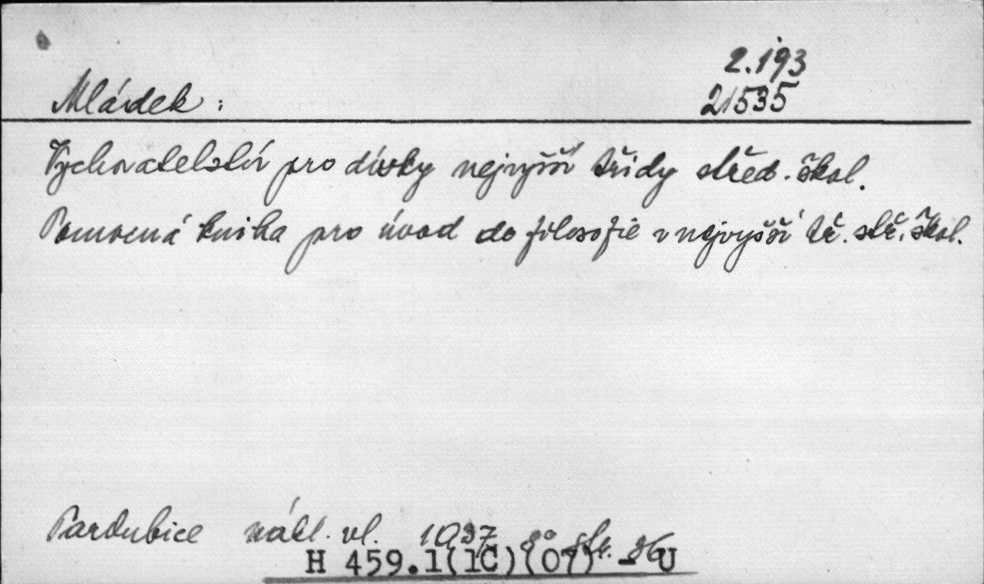 2.193
Mládek: 21535
Vychovatelství pro dívky nejvyšší třídy střed. škol.
Pomocná kniha pro úvod do filosofie v nejvyšší tř. stř. škol.
Pardubice nákl. vl. 1937 8° str. 86
H 459.1(1C)(07) - U